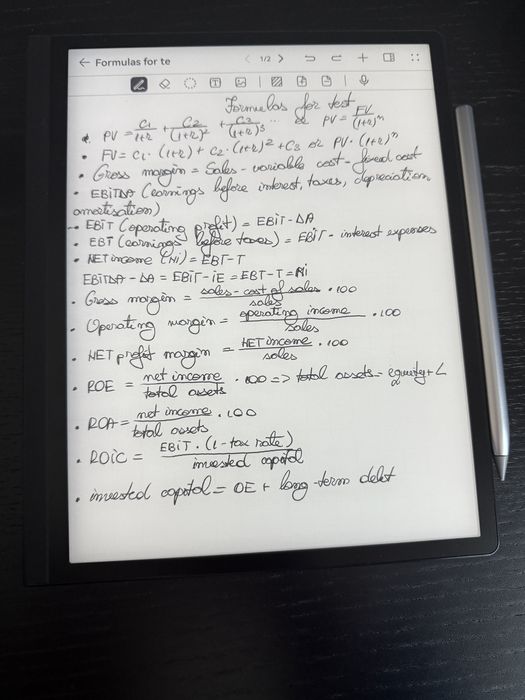 ← Formulas for te < 1/2 >
Formulas for test
• PV = C1/1+r + C2/(1+r)² + C3/(1+r)³ ... or PV = FV/(1+r)ⁿ
• FV = C1 · (1+r) + C2 · (1+r)² + C3 or PV · (1+r)ⁿ
• Gross margin = Sales - variable cost - fixed cost
• EBITDA (earnings before interest, taxes, depreciation,
amortisation)
• EBIT (operating profit) = EBIT - DA
• EBT (earnings before taxes) = EBIT - interest expenses
• NET income (Ni) = EBT - T
EBITDA - DA = EBIT - iE = EBT - T = Ni
• Gross margin = sales - cost of sales/sales · 100
• Operating margin = operating income/sales · 100
• NET profit margin = NET income/sales · 100
• ROE = net income/total assets · 100 => total assets = equity + L
• ROA = net income/total assets · 100
• ROiC = EBIT · (1 - tax rate)/invested capital
• invested capital = OE + long-term debt